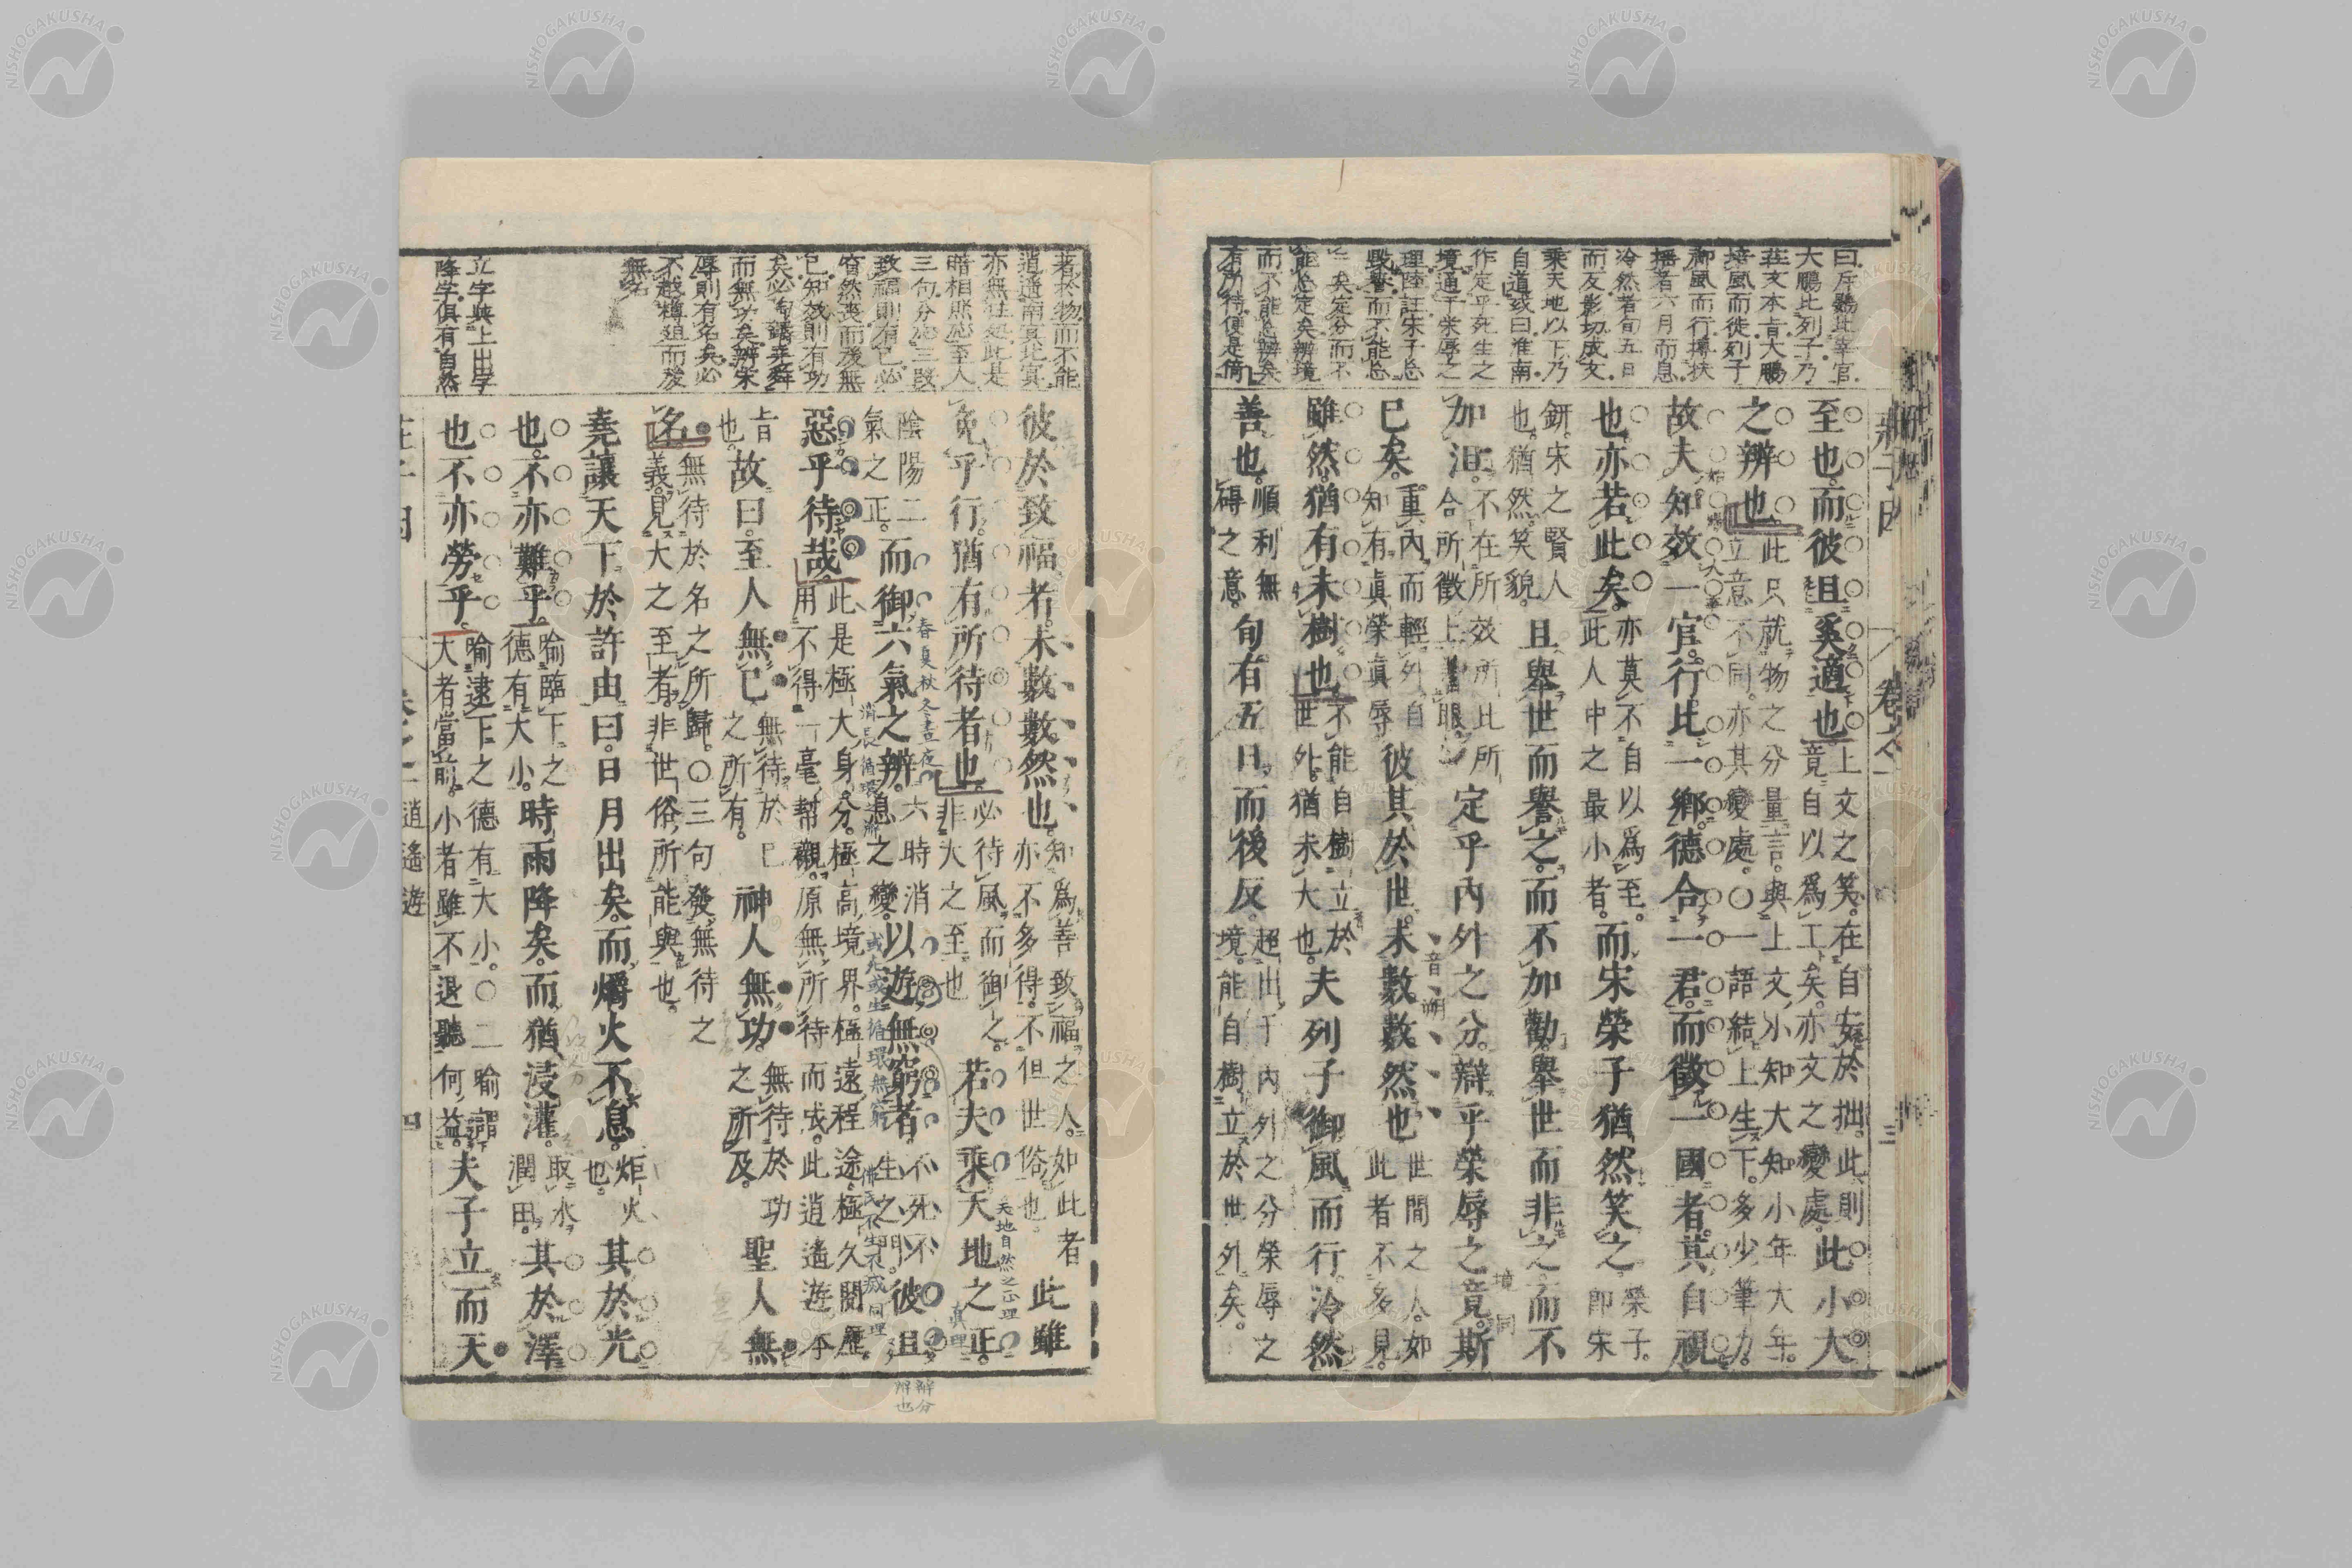 曰斥鷃比宰官
大鵬比列子乃
莊文本旨大鵬
培風而徙列子
御風而行摶扶
搖者六月而息
冷然者旬五日
而反影切成文
乘天地以下乃
自道或曰淮南
作定乎死生之
境通于榮辱之
理陸註宋子忘
毀譽而不能忘
矣定分而不
能忘定矣辨境
而不能忘辨矣
有所待便是倚
至也而彼且奚適也上文之笑在自安於拙此則
竟自以爲工矣亦文之變處此小大
之辨也此只就物之分量言與上文小知大知小年大年
立意不同亦其變處〇一語結上生下多少筆力
故夫知效一官行比一鄉德合一君而徵一國者其自視
也亦若此矣亦莫不自以爲至
此人中之最小者而宋榮子猶然笑之榮子
即宋
鈃宋之賢人
也猶然笑貌且舉世而譽之而不加勸舉世而非之而不
加沮不在所效所比所
合所徵上著眼定乎內外之分辯乎榮辱之竟斯
已矣重內而輕外自
知有眞榮眞辱彼其於世未數數然也世間之人如
此者不多見
雖然猶有未樹也不能自樹立於
世外猶未大也夫列子御風而行冷然
善也順利無
碍之意旬有五日而後反超出于內外之分榮辱之
境能自樹立於世外矣
莊子因
卷之一
三
著於物而不能
逍遥南冥北冥
亦無往处此是
暗相照應至人
三句分應三段
致福則有已必
窅然喪而後無
已知效則有功
矣必旬講堯舜
而無功矣辨宋
辱則有名矣必
不越樽俎而後
無名
立字與上出字
降字俱有自然
彼於致福者未數數然也知爲善致福之人如此者
亦不多得不但世俗也此雖
免乎行猶有所待者也必待風而御之
非大之至也若夫乘天地之正
陰陽二
氣之正而御六氣之辨六時消
息之變以遊無窮者不死不
生之門彼且
惡乎待哉此是極大身分極高境界極遠程途極久閱歷
用不得一毫幫襯原無所待而或此逍遙遊本
旨
也故曰至人無己無待於己
之所有神人無功無待於功
之所及聖人無
名無待於名之所歸〇三句發無待之
義見大之至者非世俗所能與也
堯讓天下於許由曰日月出矣而爝火不息炬火
也其於光
也不亦難乎喻臨下之
德有大小時雨降矣而猶浸灌取水
潤田其於澤
也不亦勞乎喻逮下之德有大小〇二喻謂
大者當前小者雖不退聽何益夫子立而天
逍遙遊
四
春夏秋冬晝夜
天地自然之正理
眞理
音朔
境同
辨分
辨也